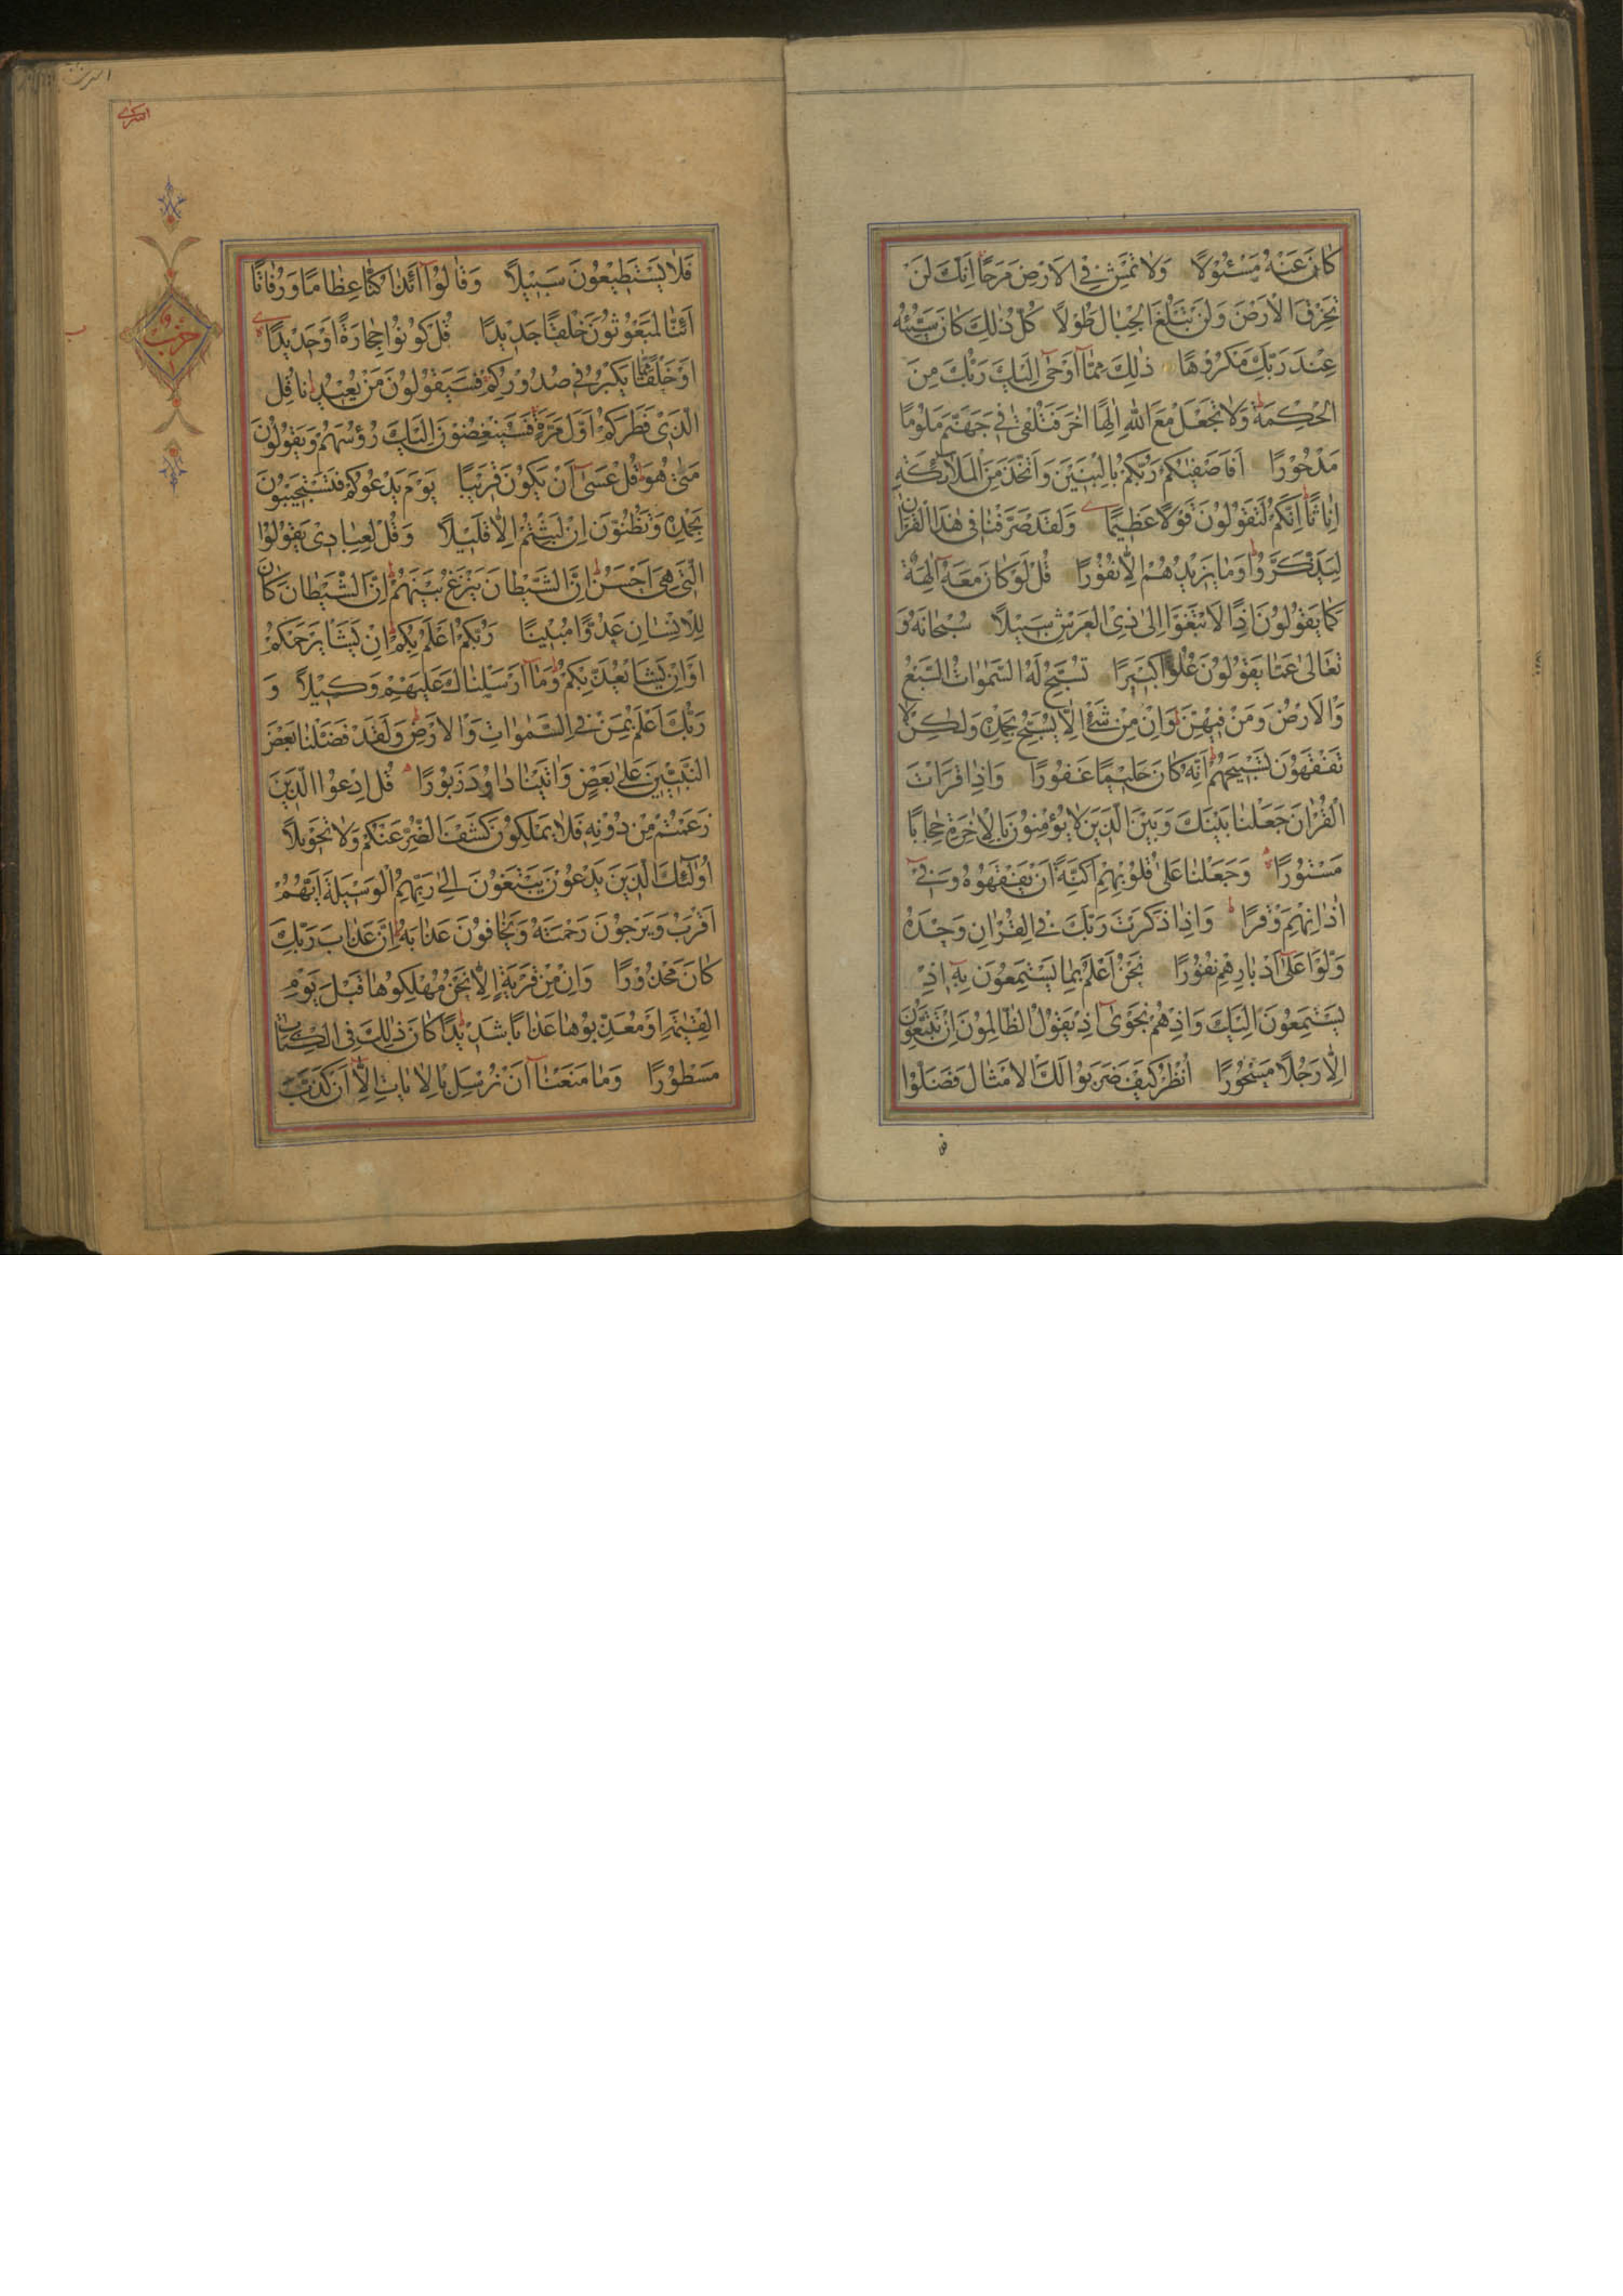 كَانَ عَنْهُ مَسْئُولًا وَلَا تَمْشِ فِي الْاَرْضِ مَرَحًا اِنَّكَ لَنْ
تَخْرِقَ الْاَرْضَ وَلَنْ تَبْلُغَ الْجِبَالَ طُولًا كُلُّ ذٰلِكَ كَانَ سَيِّئُهُ
عِنْدَ رَبِّكَ مَكْرُوهًا ذٰلِكَ مِمَّا اَوْحٰى اِلَيْكَ رَبُّكَ مِنَ
الْحِكْمَةِ وَلَا تَجْعَلْ مَعَ اللّٰهِ اِلٰهًا اٰخَرَ فَتُلْقٰى فِي جَهَنَّمَ مَلُومًا
مَدْحُورًا اَفَاَصْفٰيكُمْ رَبُّكُمْ بِالْبَنِينَ وَاتَّخَذَ مِنَ الْمَلٰٓئِكَةِ
اِنَاثًا اِنَّكُمْ لَتَقُولُونَ قَوْلًا عَظِيمًا وَلَقَدْ صَرَّفْنَا فِي هٰذَا الْقُرْاٰنِ
لِيَذَّكَّرُوا وَمَا يَزِيدُهُمْ اِلَّا نُفُورًا قُلْ لَوْ كَانَ مَعَهُ اٰلِهَةٌ
كَمَا يَقُولُونَ اِذًا لَابْتَغَوْا اِلٰى ذِي الْعَرْشِ سَبِيلًا سُبْحَانَهُ وَ
تَعَالٰى عَمَّا يَقُولُونَ عُلُوًّا كَبِيرًا تُسَبِّحُ لَهُ السَّمٰوَاتُ السَّبْعُ
وَالْاَرْضُ وَمَنْ فِيهِنَّ وَاِنْ مِنْ شَيْءٍ اِلَّا يُسَبِّحُ بِحَمْدِهِ وَلٰكِنْ لَا
تَفْقَهُونَ تَسْبِيحَهُمْ اِنَّهُ كَانَ حَلِيمًا غَفُورًا وَاِذَا قَرَاْتَ
الْقُرْاٰنَ جَعَلْنَا بَيْنَكَ وَبَيْنَ الَّذِينَ لَا يُؤْمِنُونَ بِالْاٰخِرَةِ حِجَابًا
مَسْتُورًا وَجَعَلْنَا عَلٰى قُلُوبِهِمْ اَكِنَّةً اَنْ يَفْقَهُوهُ وَفِي
اٰذَانِهِمْ وَقْرًا وَاِذَا ذَكَرْتَ رَبَّكَ فِي الْقُرْاٰنِ وَحْدَهُ
وَلَّوْا عَلٰى اَدْبَارِهِمْ نُفُورًا نَحْنُ اَعْلَمُ بِمَا يَسْتَمِعُونَ بِهِ اِذْ
يَسْتَمِعُونَ اِلَيْكَ وَاِذْ هُمْ نَجْوٰى اِذْ يَقُولُ الظَّالِمُونَ اِنْ تَتَّبِعُونَ
اِلَّا رَجُلًا مَسْحُورًا اُنْظُرْ كَيْفَ ضَرَبُوا لَكَ الْاَمْثَالَ فَضَلُّوا
فَلَا يَسْتَطِيعُونَ سَبِيلًا وَقَالُوا اَئِذَا كُنَّا عِظَامًا وَرُفَاتًا
اَئِنَّا لَمَبْعُوثُونَ خَلْقًا جَدِيدًا قُلْ كُونُوا حِجَارَةً اَوْ حَدِيدًا
اَوْ خَلْقًا مِمَّا يَكْبُرُ فِي صُدُورِكُمْ فَسَيَقُولُونَ مَنْ يُعِيدُنَا قُلِ
الَّذِي فَطَرَكُمْ اَوَّلَ مَرَّةٍ فَسَيُنْغِضُونَ اِلَيْكَ رُؤُسَهُمْ وَيَقُولُونَ
مَتٰى هُوَ قُلْ عَسٰى اَنْ يَكُونَ قَرِيبًا يَوْمَ يَدْعُوكُمْ فَتَسْتَجِيبُونَ
بِحَمْدِهِ وَتَظُنُّونَ اِنْ لَبِثْتُمْ اِلَّا قَلِيلًا وَقُلْ لِعِبَادِي يَقُولُوا
الَّتِي هِيَ اَحْسَنُ اِنَّ الشَّيْطَانَ يَنْزَغُ بَيْنَهُمْ اِنَّ الشَّيْطَانَ كَانَ
لِلْاِنْسَانِ عَدُوًّا مُبِينًا رَبُّكُمْ اَعْلَمُ بِكُمْ اِنْ يَشَاْ يَرْحَمْكُمْ
اَوْ اِنْ يَشَاْ يُعَذِّبْكُمْ وَمَا اَرْسَلْنَاكَ عَلَيْهِمْ وَكِيلًا وَ
رَبُّكَ اَعْلَمُ بِمَنْ فِي السَّمٰوَاتِ وَالْاَرْضِ وَلَقَدْ فَضَّلْنَا بَعْضَ
النَّبِيِّينَ عَلٰى بَعْضٍ وَاٰتَيْنَا دَاوُدَ زَبُورًا قُلِ ادْعُوا الَّذِينَ
زَعَمْتُمْ مِنْ دُونِهِ فَلَا يَمْلِكُونَ كَشْفَ الضُّرِّ عَنْكُمْ وَلَا تَحْوِيلًا
اُولٰٓئِكَ الَّذِينَ يَدْعُونَ يَبْتَغُونَ اِلٰى رَبِّهِمُ الْوَسِيلَةَ اَيُّهُمْ
اَقْرَبُ وَيَرْجُونَ رَحْمَتَهُ وَيَخَافُونَ عَذَابَهُ اِنَّ عَذَابَ رَبِّكَ
كَانَ مَحْذُورًا وَاِنْ مِنْ قَرْيَةٍ اِلَّا نَحْنُ مُهْلِكُوهَا قَبْلَ يَوْمِ
الْقِيٰمَةِ اَوْ مُعَذِّبُوهَا عَذَابًا شَدِيدًا كَانَ ذٰلِكَ فِي الْكِتَابِ
مَسْطُورًا وَمَا مَنَعَنَا اَنْ نُرْسِلَ بِالْاٰيَاتِ اِلَّا اَنْ كَذَّبَ
حزب